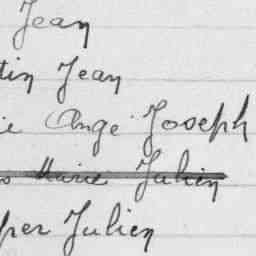 Jean
tin Jean
ie Ange Joseph
Marie Julien
per Julien